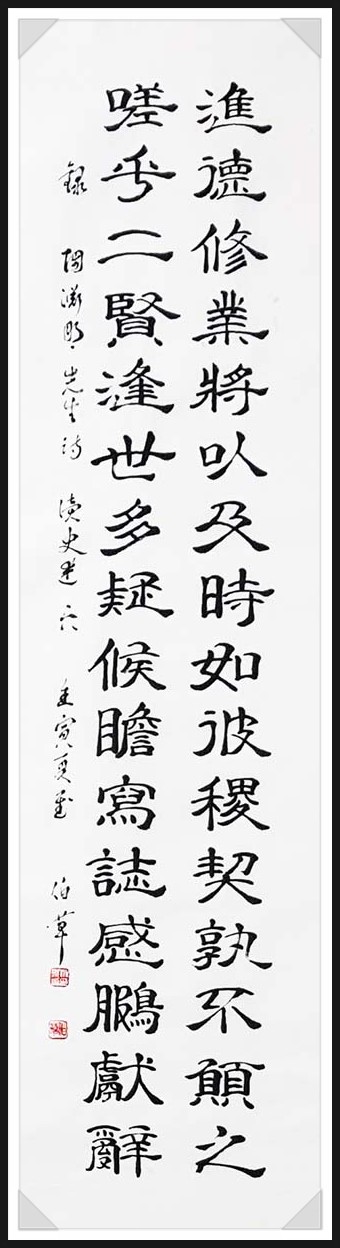 進德修業將以及時如彼稷契孰不願之
嗟乎二賢逢世多疑候瞻寫誌感鵩獻辭
錄 陶淵明先生詩 讀史述六 壬寅夏至 伯